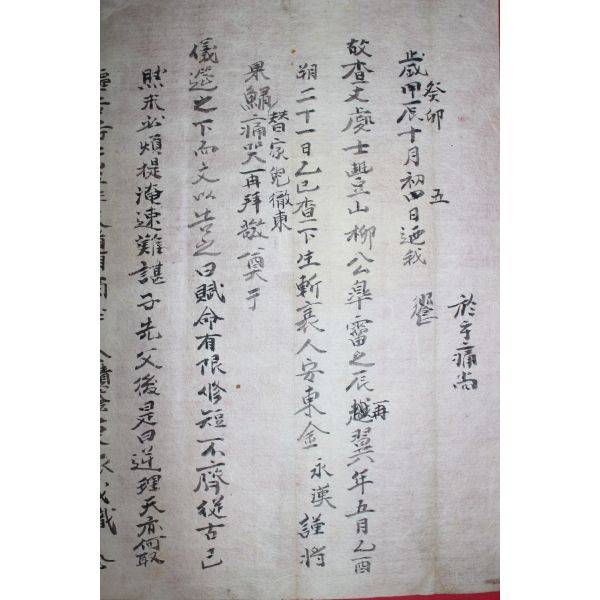 於乎痛尚
饗
歲甲辰十月初四日廼我
癸卯 五
故查丈處士豐山柳公皐復之辰越再翼六年五月乙酉
朔二十一日乙巳查下生斬衰人安東金永漢謹將
替家兒徹東
果鱐痛哭再拜敬奠于
儀筵之下而文以告之曰賦命有限修短不齊從古已
然未必煩提淹速難諶子先父後是曰逆理天亦何取